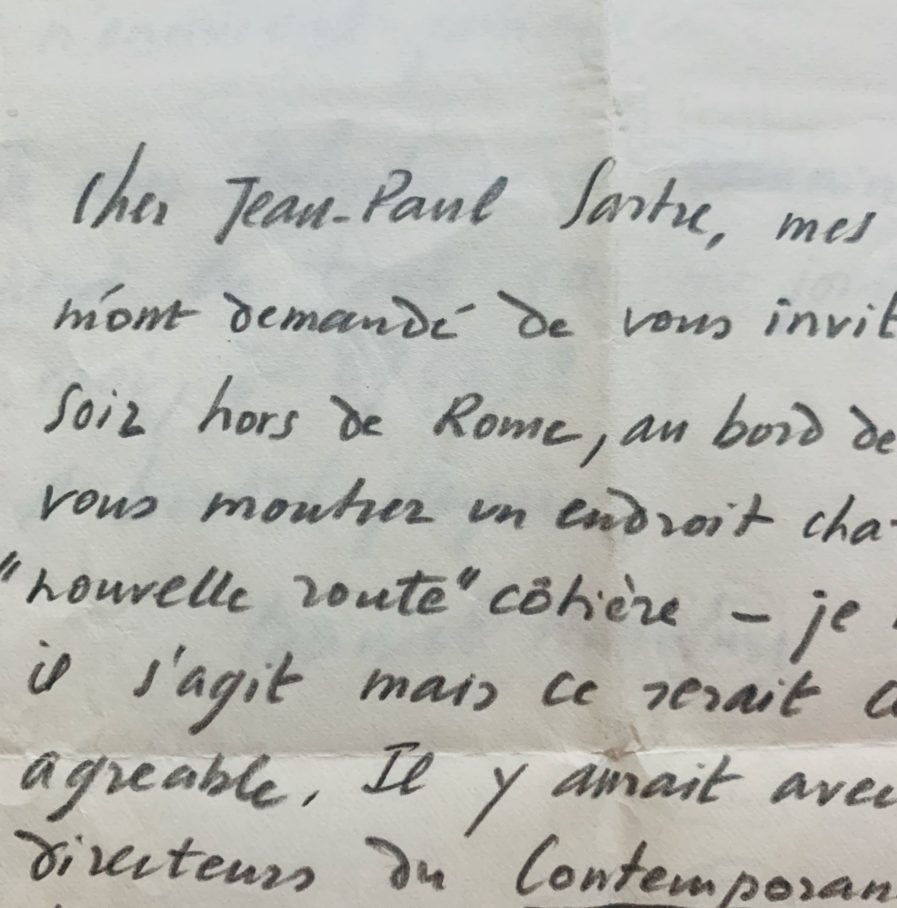 Cher Jean-Paul Sartre, mes
m'ont demandé de vous invit
soir hors de Rome, au bord de
vous montrer un endroit cha
"nouvelle route" côtière – je
il s'agit mais ce serait
agreable. Il y aurait avec
directeurs du Contemporan